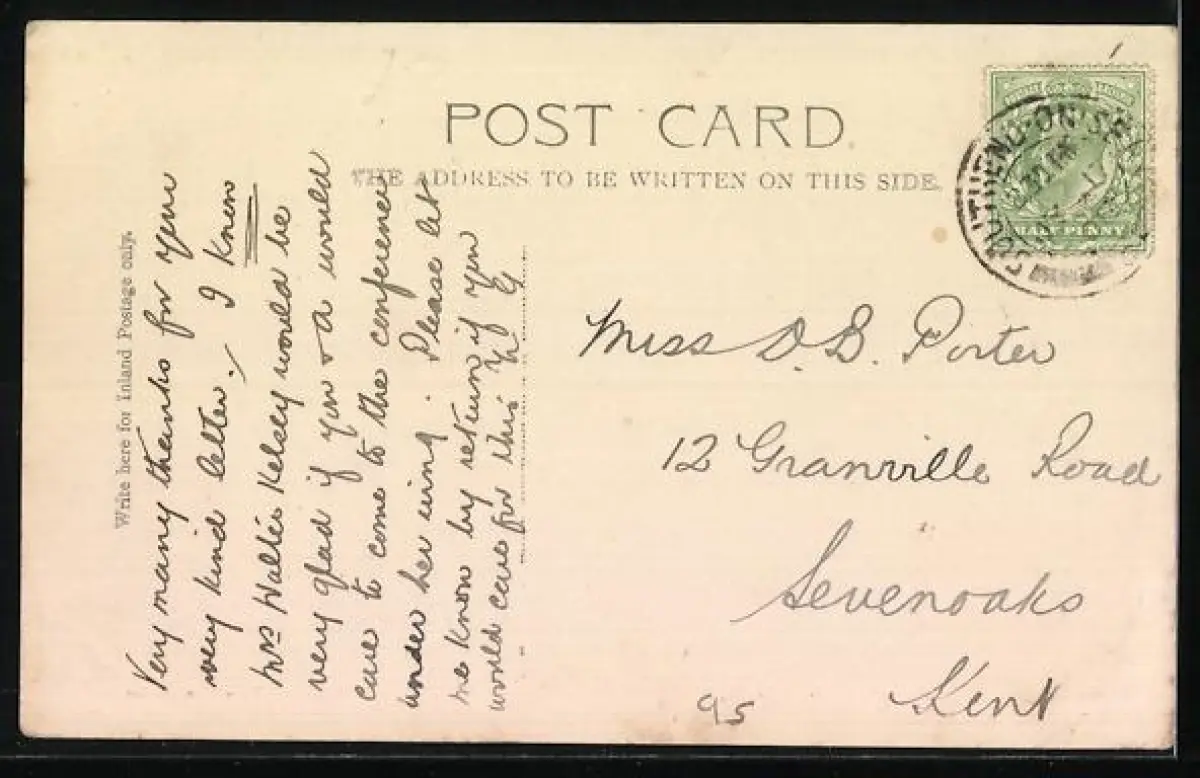 POST CARD
THE ADDRESS TO BE WRITTEN ON THIS SIDE.
Write here for Inland Postage only.
Very many thanks for your
very kind letter. I know
Mrs Walter Kelsey would be
very glad if you & a would
care to come to the conference
under her wing. Please let
me know by return if you
would care for this
SOUTHEND-ON-SEA
HALF PENNY
Miss D. B. Porter
12 Granville Road
Sevenoaks
Kent
95